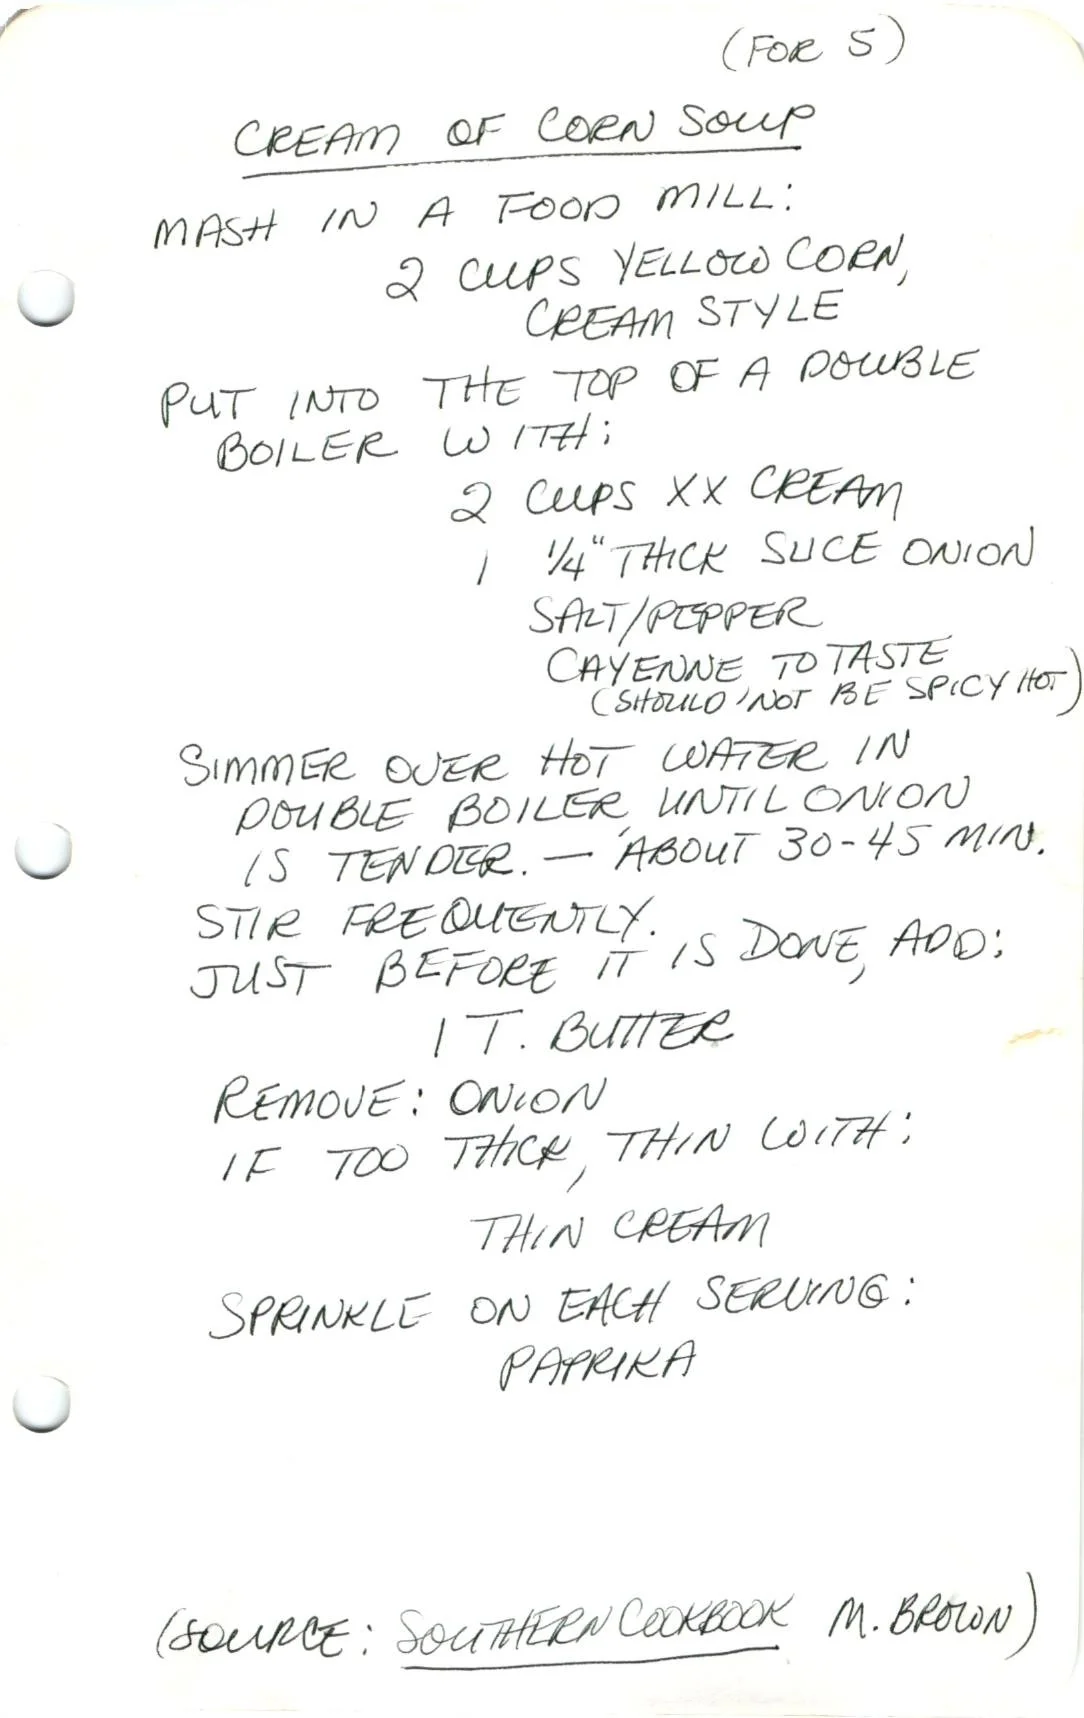 (FOR 5)
CREAM OF CORN SOUP
MASH IN A FOOD MILL:
2 CUPS YELLOW CORN,
CREAM STYLE
PUT INTO THE TOP OF A DOUBLE
BOILER WITH:
2 CUPS XX CREAM
1 1/4" THICK SLICE ONION
SALT/PEPPER
CAYENNE TO TASTE
(SHOULD NOT BE SPICY HOT)
SIMMER OVER HOT WATER IN
DOUBLE BOILER UNTIL ONION
IS TENDER. — ABOUT 30-45 MIN.
STIR FREQUENTLY.
JUST BEFORE IT IS DONE, ADD:
1 T. BUTTER
REMOVE: ONION
IF TOO THICK, THIN WITH:
THIN CREAM
SPRINKLE ON EACH SERVING:
PAPRIKA
(SOURCE: SOUTHERN COOKBOOK M. BROWN)